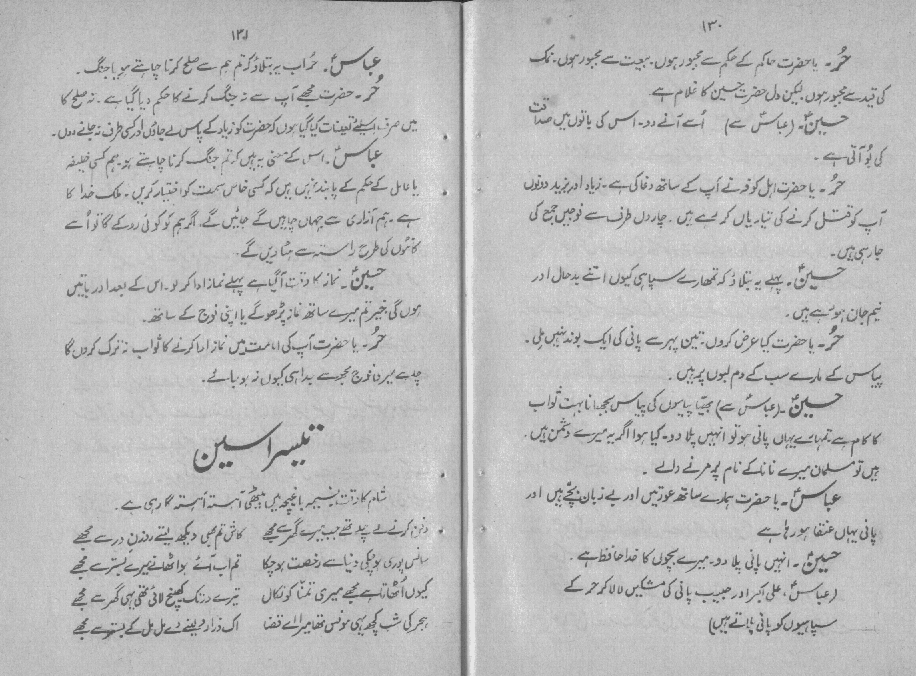 ۱۳۰
حُر۔ یا حضرت حاکم کے حکم سے مجبور ہوں۔ بیعت سے مجبور ہوں۔ نمک
کی قید سے مجبور ہوں لیکن دل حضرت حسین کا غلام ہے
حسینؑ۔ (عباسؑ سے) اُسے آنے دو۔ اس کی باتوں میں صداقت
کی بُو آتی ہے۔
حُر۔ یا حضرت اہل کوفہ نے آپ کے ساتھ دغا کی ہے۔ زیاد اور یزید دونوں
آپ کو قتل کرنے کی تیاریاں کر رہے ہیں۔ چاروں طرف سے فوجیں جمع کی
جا رہی ہیں۔
حسینؑ۔ پہلے یہ بتلاؤ کہ تمھارے سپاہی کیوں اتنے بدحال اور
نیم جان ہو رہے ہیں۔
حُر۔ یا حضرت کیا عرض کروں۔ تین پہر سے پانی کی ایک بوند نہیں ملی۔
پیاس کے مارے سب کے دم لبوں پر ہیں۔
حسینؑ۔ (عباسؑ سے) بھیّا پیاسوں کی پیاس بجھانا بہت ثواب
کا کام ہے۔ تمہارے یہاں پانی ہو تو انہیں پلا دو۔ کیا ہوا اگر یہ میرے دشمن ہیں۔
ہیں تو مسلمان میرے نانا کے نام پر مرنے والے۔
عباسؑ۔ یا حضرت ہمارے ساتھ عورتیں اور بے زبان بچّے ہیں اور
پانی یہاں عنقا ہو رہا ہے
حسینؑ۔ انہیں پانی پلا دو۔ میرے بچوں کا خدا حافظ ہے۔
(عباسؑ، علی اکبر اور حبیب پانی کی مشکیں لا لا کر حر کے
سپاہیوں کو پانی پلاتے ہیں)
۱۳۱
عباسؑ۔ حُر اب یہ بتلاؤ کہ تم ہم سے صلح کرنا چاہتے ہو یا جنگ۔
حُر۔ حضرت مجھے آپ سے نہ جنگ کرنے کا حکم دیا گیا ہے۔ نہ صلح کا
میں صرف اس لئے تعینات کیا گیا ہوں کہ حضرت کو زیاد کے پاس لے جاؤں اور کسی طرف نہ جانے دوں۔
عباسؑ۔ اس کے معنی یہ ہیں کہ تم جنگ کرنا چاہتے ہو۔ ہم کسی خلیفہ
یا عامل کے حکم کے پابند نہیں ہیں کہ کسی خاص سمت کو اختیار کریں۔ ملک خدا کا
ہے۔ ہم آزادی سے جہاں چاہیں گے جائیں گے۔ اگر ہم کو کوئی روکے گا تو اُسے
کانٹوں کی طرح راستہ سے ہٹا دیں گے۔
حسینؑ۔ نماز کا وقت آگیا ہے پہلے نماز ادا کر لو۔ اس کے بعد اور باتیں
ہوں گی خُر تم میرے ساتھ نماز پڑھو گے یا اپنی فوج کے ساتھ۔
حُر۔ یا حضرت آپ کی امامت میں نماز ادا کرنے کا ثواب نہ ترک کروں گا
چاہے میری فوج مجھ سے جدا ہی کیوں نہ ہو جائے۔
تیسرا سین
شام کا وقت نسیمہ باغیچہ میں بیٹھی آہستہ آہستہ گا رہی ہے۔
دفن کرنے لے چلے تھے جب تیرے گھر سے مجھے کاش تم بھی دیکھ لیتے روزنِ در سے مجھے
سانس پوری ہو چکی دنیا سے رخصت ہو چکا تم اب آئے ہو اٹھانے میرے بستر سے مجھے
کیوں اُٹھاتا ہے مجھے میری تمنّا کو نکال تیرے در تک کھینچ لائی تھی یہی گھر سے مجھے
ہجر کی شب کچھ یہی مونس تھا میرا اے قضا اک ذرا رو لینے دے مل مل کے بستر سے مجھے